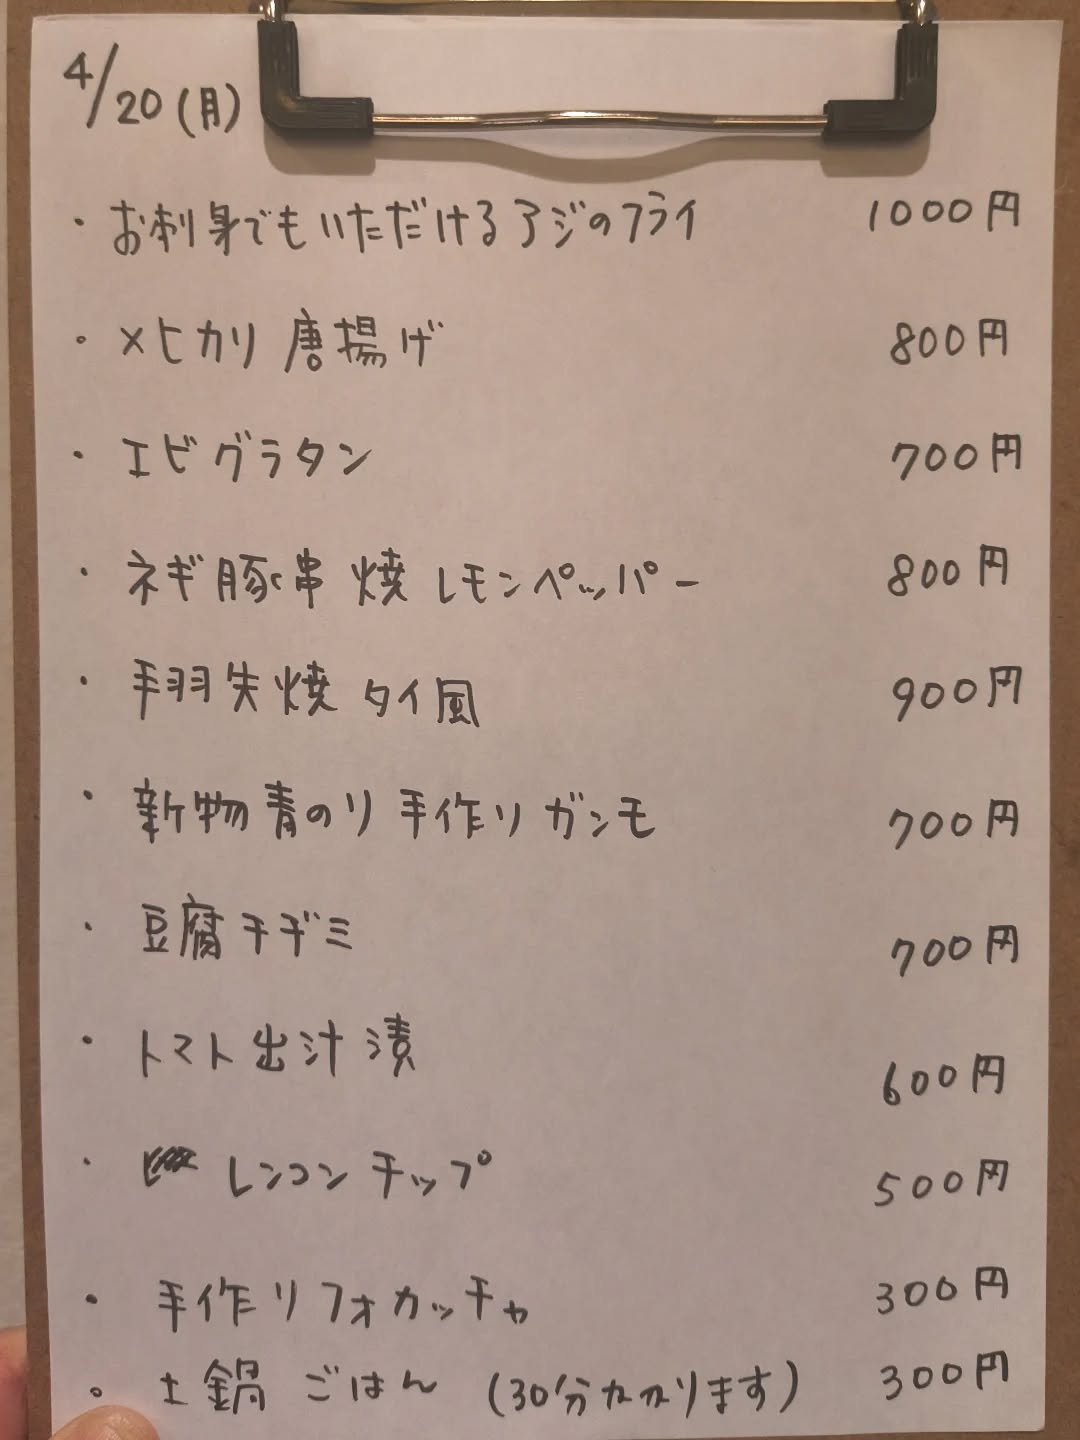 4/20(月)
・お刺身でもいただけるアジのフライ 1000円
・メヒカリ唐揚げ 800円
・エビグラタン 700円
・ネギ豚串焼レモンペッパー 800円
・手羽先焼タイ風 900円
・新物青のり手作りガンモ 700円
・豆腐チヂミ 700円
・トマト出汁漬 600円
・レンコンチップ 500円
・手作りフォカッチャ 300円
・土鍋ごはん(30分かかります) 300円